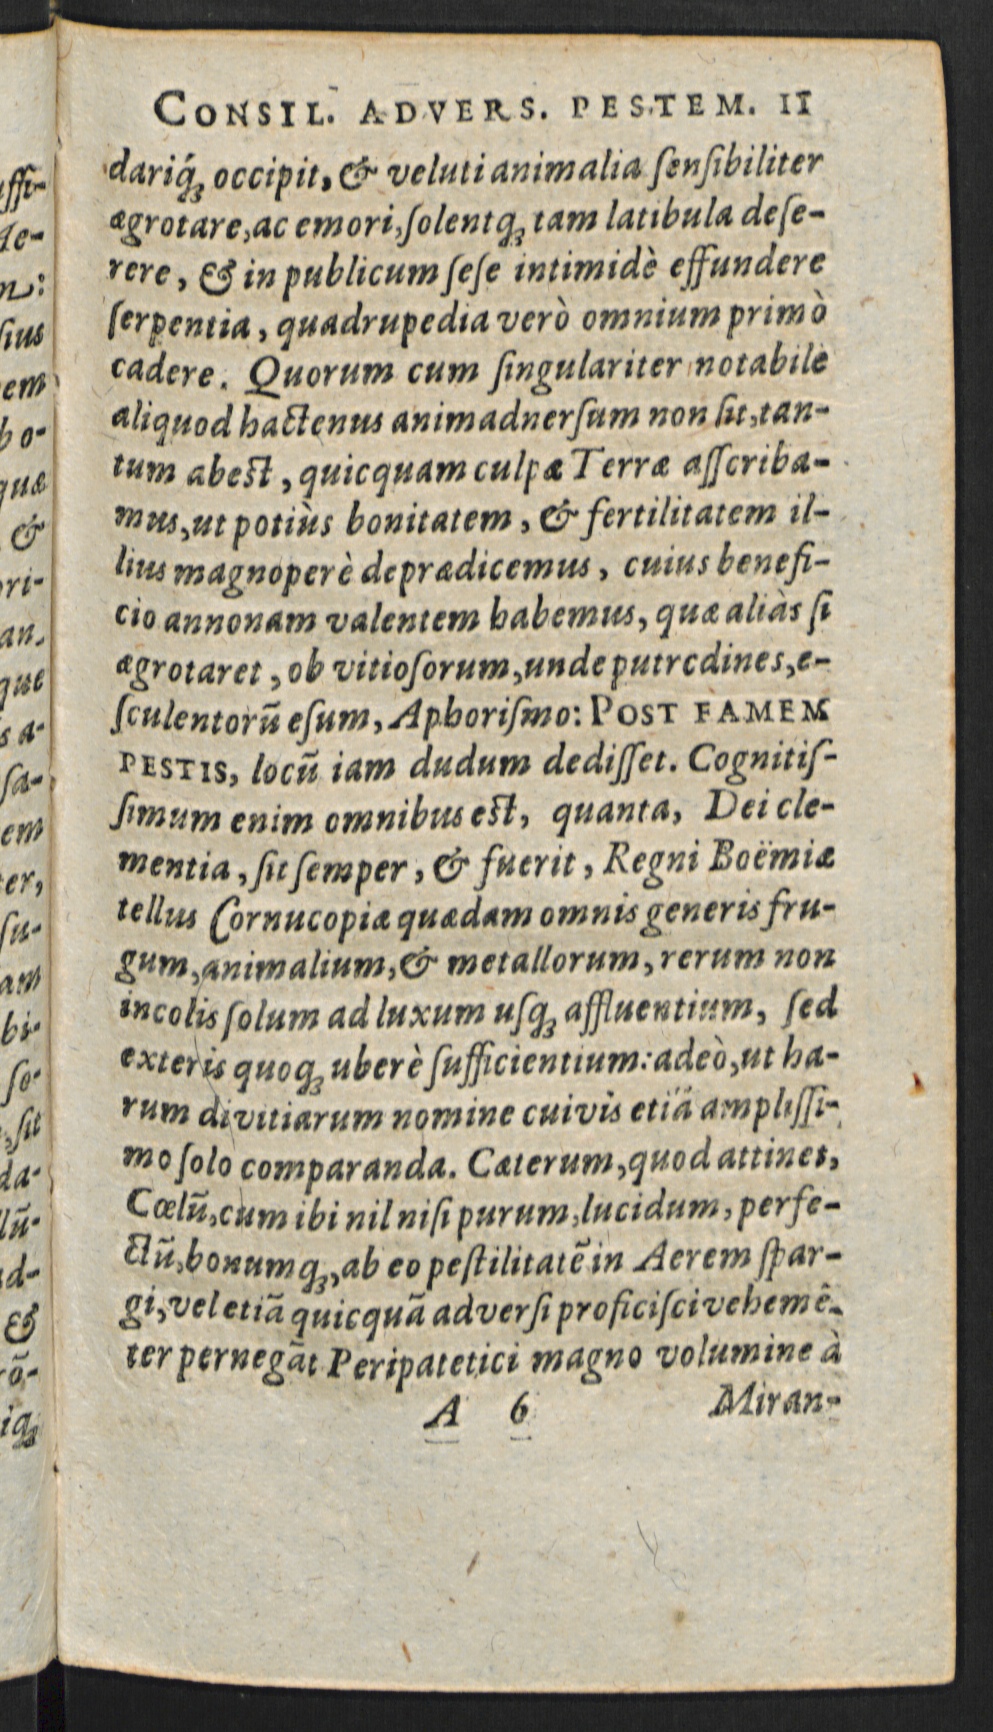 CONSIL. ADVERS. PESTEM. 11
dariq́ꝫ occipit, & veluti animalia ſenſibiliter
ægrotare, ac emori, ſolentqꝫ tam latibula deſe-
rere, & in publicum ſeſe intimidè effundere
ſerpentia, quadrupedia verò omnium primò
cadere. Quorum cum ſingulariter notabile
aliquod hactenus animadnerſum non ſit, tan-
tum abeſt, quicquam culpæ Terræ aſſcriba-
mus, ut potiùs bonitatem, & fertilitatem il-
lius magnoperè deprædicemus, cuius benefi-
cio annonam valentem habemus, quæ aliàs ſi
ægrotaret, ob vitioſorum, unde putrcdines, e-
ſculentorũ eſum, Aphoriſmo: POST FAMEM
PESTIS, locũ iam dudum dediſſet. Cognitiſ-
ſimum enim omnibus eſt, quanta, Dei cle-
mentia, ſit ſemper, & fuerit, Regni Boëmiæ
tellus Cornucopiæ quædam omnis generis fru-
gum, animalium, & metallorum, rerum non
incolis ſolum ad luxum uſqꝫ affluentium, ſed
exteris quoqꝫ uberè ſufficientium: adeò, ut ha-
rum divitiarum nomine cuivis etiã ampliſſi-
mo ſolo comparanda. Cæterum, quod attinet,
Cœlũ, cum ibi nil niſi purum, lucidum, perfe-
ctũ, bonumqꝫ, ab eo peſtilitatẽ in Aerem ſpar-
gi, vel etiã quicquã adverſi proficiſci vehemẽ-
ter pernegãt Peripatetici magno volumine à
A 6 Miran-